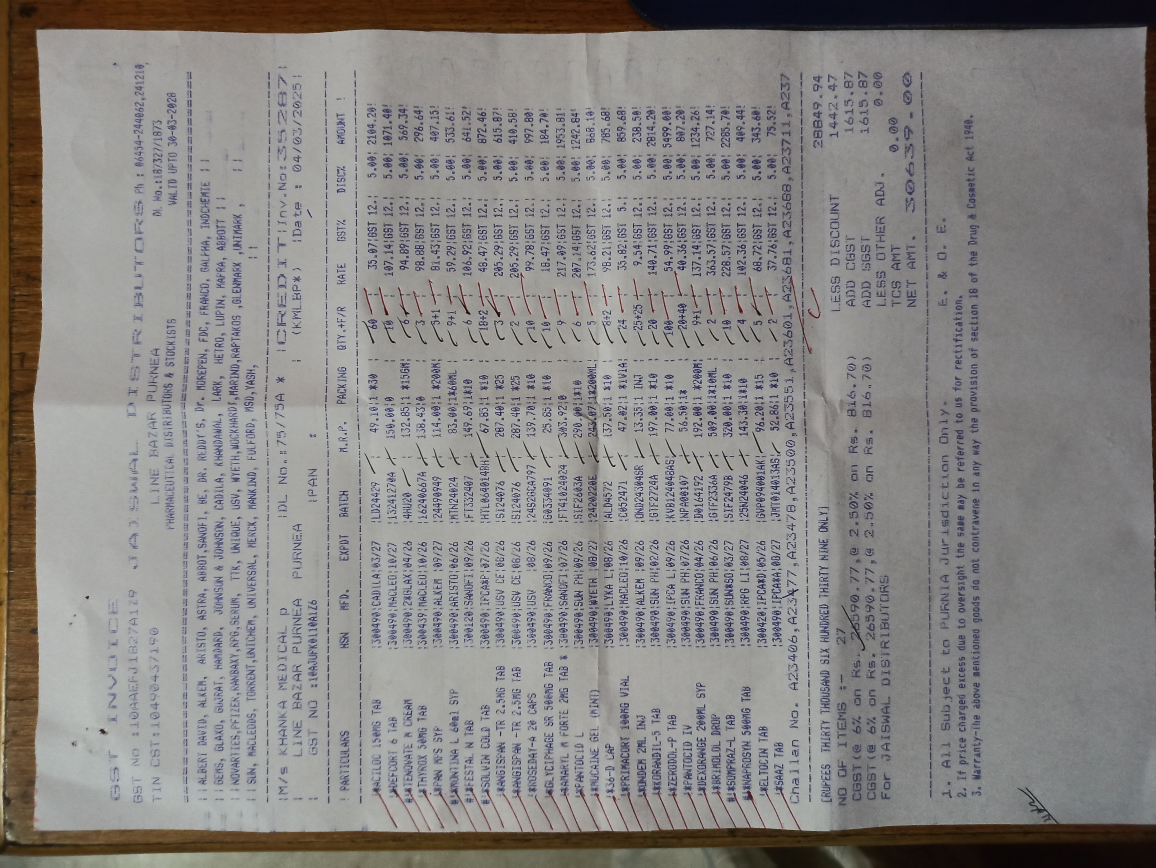 GST INVOICE
GST NO :10AAEFJ1827A1Z9 JAISWAL DISTRIBUTORS Ph : 06454-244062,241210,
TIN CST:10490437190 LINE BAZAR PURNEA DL No.:187327/1873
PHARMACEUTICAL DISTRIBUTORS & STOCKISTS VALID UPTO 30-03-2028
||ALBERT DAVID, ALKEM, ARISTO, ASTRA, ABBOT,SANOFI, BE, DR. REDDY'S, Dr. MOREPEN, FDC, FRANCO, GALPHA, INDCHEMIE ||
||GEMS, GLAXO, GUJRAT, HAMDARD, JOHNSON & JOHNSON, CADILA, KHANDAWAL, LARK, HETRO, LUPIN, KAPRA, ABBOTT ||
||NOVARTIES,PFIZER,RANBAXY,RPG,SERUM, TTK, UNIQUE, USV, WYETH,WOCKHARDT,MARIND,RAPTAKOS ,GLENMARK ,UNIMARK , ||
||SUN, MACLEODS, TORRENT,UNICHEM, UNIVERSAL, MERCK, MANKIND, FULFORD, MSD,YASH, ||
|M/s KHANKA MEDICAL p |DL No.:75/75A * |CREDIT|Inv.No:35287|
| LINE BAZAR PURNEA PURNEA (KMLBP*) |Date : 04/03/2025|
| GST NO :10AJUPK0110A1Z6 |PAN :
| PARTICULARS HSN MFD. EXPDT BATCH M.R.P. PACKING QTY.+F/R RATE GST% DISC% AMOUNT |
ACILOC 150MG TAB |300490|CADILA|03/27 |LD24429 49.10|1*30 60 35.07|GST 12.| 5.00| 2104.20|
DEFCORT 6 TAB |300490|MACLEO|10/27 150.00|0 10 107.14|GST 12.| 5.00| 1071.40|
TENOVATE M CREAM |300490|04/26 |4HU20 132.85|1 *15GM 6 94.89|GST 12.| 5.00| 569.34|
THYROX 50MG TAB |300439|MACLEO|10/26 138.43|0 3 98.88|GST 12.| 5.00| 296.64|
PAN MPS SYP |300490|ALKEM |09/27 |24490449 114.00|1 *200M 5+1 81.43|GST 12.| 5.00| 407.15|
MONTINA L 60ml SYP |300490|ARISTO|06/26 |MTN24024 83.00|1*60ML 9+1 59.29|GST 12.| 5.00| 533.61|
FESTAL N TAB |300120|SANOFI|09/26 |FT332407 149.69|1*10 6 106.92|GST 12.| 5.00| 641.52|
SOLVIN COLD TAB |300490|IPCA*P|07/26 |HTL064014BH| 67.85|1 *10 18+2 48.47|GST 12.| 5.00| 872.46|
ANGISPAN -TR 2.5MG TAB |300490|USV CE|08/26 |SI24076 287.40|1 *25 3 205.29|GST 12.| 5.00| 615.87|
ANGISPAN -TR 2.5MG TAB |300490|USV CE|08/26 |SI24076 287.40|1 *25 2 205.29|GST 12.| 5.00| 410.58|
ROSEDAY-A 20 CAPS |300490|USV |08/26 139.70|1 *10 10 99.78|GST 12.| 5.00| 997.80|
GLYCIPHAGE SR 500MG TAB |300490|FRANCO|09/26 |G0334091 25.85|1 *10 10 18.47|GST 12.| 5.00| 184.70|
AMARYL M FORTE 2MG TAB * |300490|SANOFI|07/26 |FT41024024 303.92|0 9 217.09|GST 12.| 5.00| 1953.81|
PANTOCID L |300490|SUN PH|09/26 |SIF2603A 290.00|1*10 6 207.14|GST 12.| 5.00| 1242.84|
MUCAINE GEL (MINT) |300490|WYETH |08/27 |2420220E 243.07|1*200ML 5 173.62|GST 12.| 5.00| 868.10|
3G-D CAP |300490|LYKA L|08/26 |ALD4572 137.50|1 *10 8+2 98.21|GST 12.| 5.00| 785.68|
PRIMACORT 100MG VIAL |300490|MACLEO|10/26 |C052471 47.02|1 *1VIA| 24 35.82|GST 5.| 5.00| 859.68|
KONDEM 2ML INJ |300490|ALKEM |09/26 |OND24304SR 13.35|1 INJ 25+25 9.54|GST 12.| 5.00| 238.50|
KORANDIL-5 TAB |300490|SUN PH|02/26 |GTF2724A 197.00|1 *10 20 140.71|GST 12.| 5.00| 2814.20|
ZERODOL-P TAB |300490|IPCA L|09/26 |KVB124048AS| 77.00|1 *10 100 54.99|GST 12.| 5.00| 5499.00|
PANTOCID IV |300490|SUN PH|07/26 |NPA00107 56.50|1* 20+40 40.36|GST 12.| 5.00| 807.20|
DEXORANGE 200ML SYP |300490|FRANCO|04/26 |DO164192 192.00|1 *200M 9+1 137.14|GST 12.| 5.00| 1234.26|
BRIMOLOL DROP |300490|SUN PH|06/26 |GTF2336A 509.00|1*10ML 2 363.57|GST 12.| 5.00| 727.14|
SOMPRAZ-L TAB |300490|SUN*SO|03/27 |SIF2479B 320.00|1 *10 10 228.57|GST 12.| 5.00| 2285.70|
NAPROSYN 500MG TAB |300490|RPG LI|08/27 |25N24046 143.30|1*10 4 102.36|GST 12.| 5.00| 409.44|
ELTOCIN TAB |300420|IPCA*D|05/26 |GVP094001AK| 96.20|1 *15 5 68.72|GST 12.| 5.00| 343.60|
SAAZ TAB |300490|IPCA*A|08/27 |JMT014013AS| 52.86|1 *10 2 37.76|GST 12.| 5.00| 75.52|
Challan No. A23406,A23477,A23478,A23500,A23551,A23601,A23681,A23688,A23711,A237
28849.94
(RUPEES THIRTY THOUSAND SIX HUNDRED THIRTY NINE ONLY) LESS DISCOUNT 1442.47
NO OF ITEMS :- 27 ADD CGST 1615.87
CGST(@ 6% on Rs. 26590.77,@ 2.50% on Rs. 816.70) ADD SGST 1615.87
SGST(@ 6% on Rs. 26590.77,@ 2.50% on Rs. 816.70) LESS OTHER ADJ. 0.00
For JAISWAL DISTRIBUTORS TCS AMT 0.00
NET AMT. 30639.00
1. All Subject to PURNIA Jurisdiction Only. E. & O. E.
2. If price charged excess due to oversight the same may be referred to us for rectification.
3. Warranty-the above mentioned goods do not contravene in any way the provision of section 18 of the Drug & Cosmetic Act 1940.